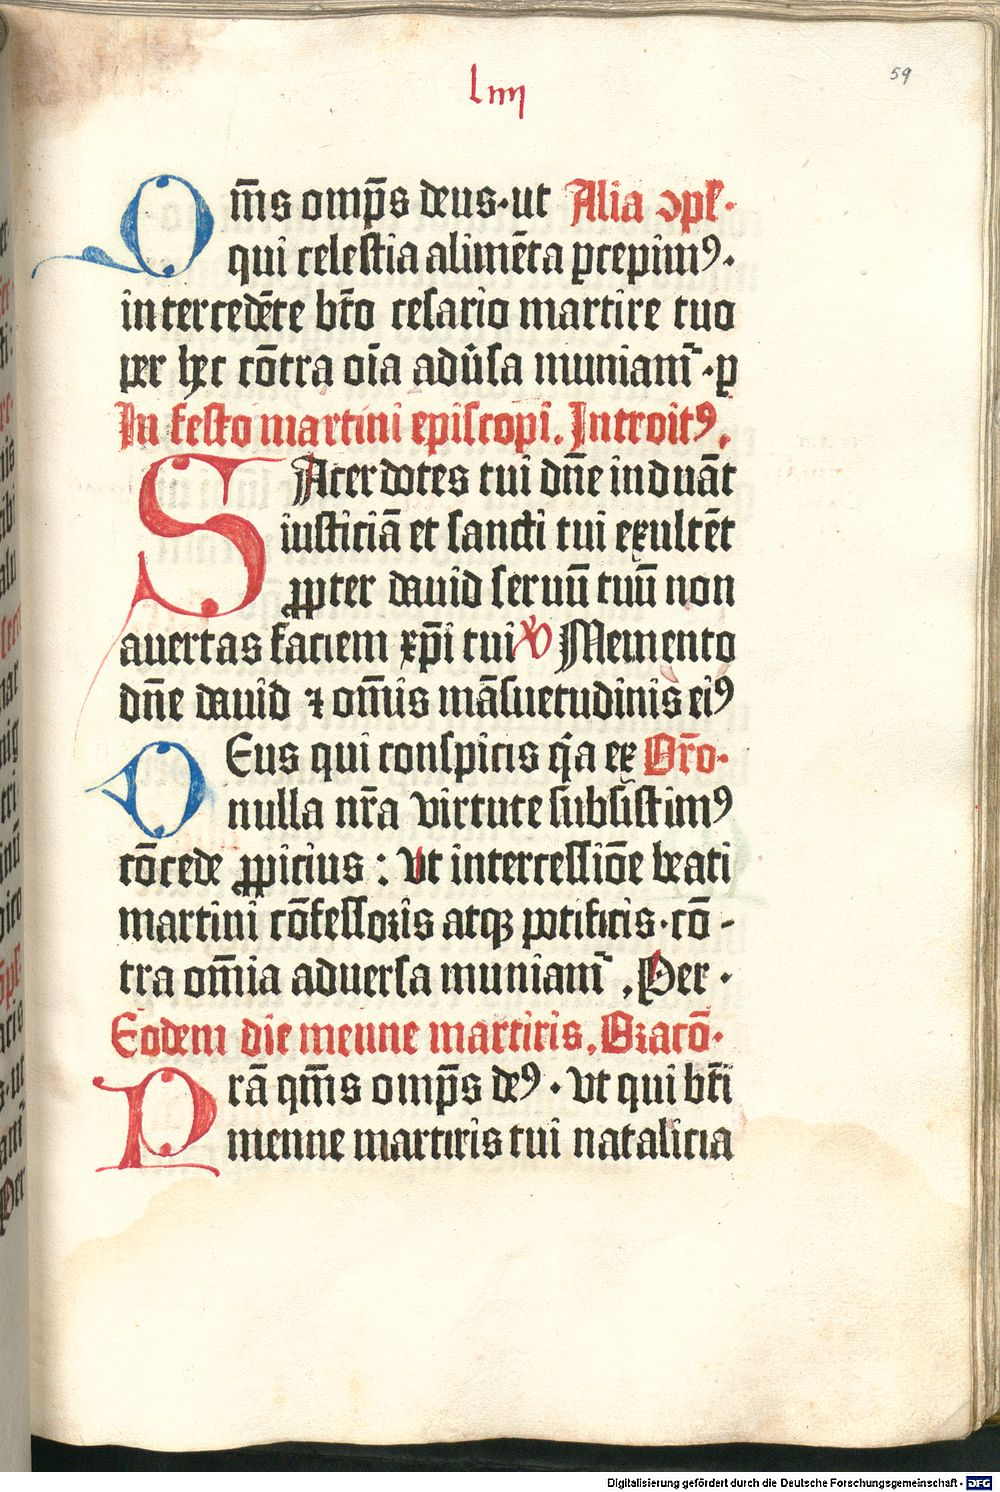 liiij
59
Om̄s omp̄s deus·ut Alia ꝯpl̄·
qui celestia alimēta ꝑcepimꝰ·
intercedēte bt̄o cesario martire tuo
per hec cōtra oīa adūsa muniam̄·ꝑ
In festo martini episcopi. Introitꝰ.
SAcerdotes tui dn̄e induāt
iusticiā et sancti tui exultēt
ꝓpter dauid seruū tuū non
auertas faciem xp̄i tui ℣ Memento
dn̄e dauid ⁊ om̄is māsuetudinis eiꝰ
DEus qui conspicis q̄a ex Or̄o·
nulla nr̄a virtute subsistimꝰ
cōcede ꝓpicius : Ut intercessiōe beati
martini cōfessoris atqꝫ pōtificis·cō-
tra om̄ia aduersa muniam̄ .Per·
Eodem die menne martiris. Oracō·
Prā qm̄s omp̄s deꝰ·Ut qui bt̄i
menne martiris tui natalicia
Digitalisierung gefördert durch die Deutsche Forschungsgemeinschaft - DFG